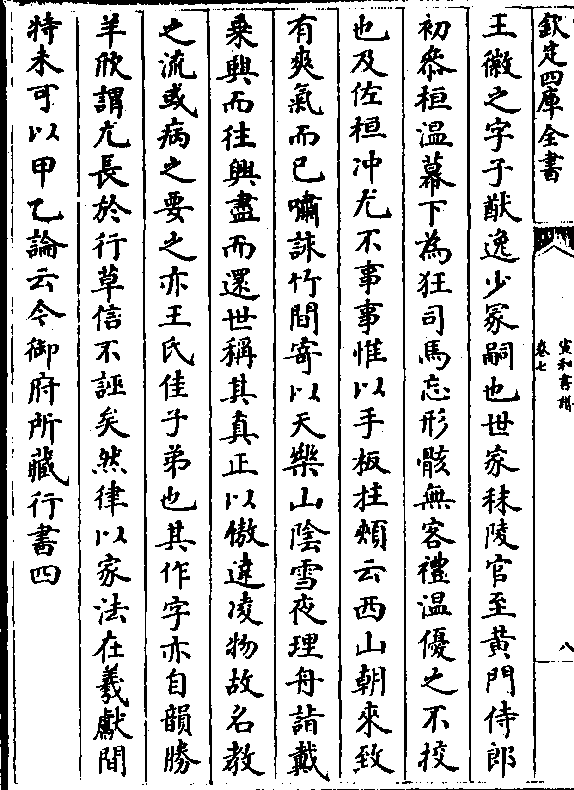 欽定四庫全書
宣和書譜
卷七
八
王徽之字子猷逸少冢嗣也世家秣陵官至黃門侍郎
初叅桓溫幕下為狂司馬忘形骸無客禮溫優之不挍
也及佐桓冲尤不事事惟以手板拄頰云西山朝來致
有爽氣而已嘯詠竹間寄以天樂山陰雪夜理舟詣戴
乘興而往興盡而還世稱其真正以傲違凌物故名教
之流或病之要之亦王氏佳子弟也其作字亦自韻勝
羊欣謂尤長於行草信不誣矣然律以家法在羲獻間
特未可以甲乙論云今御府所藏行書四